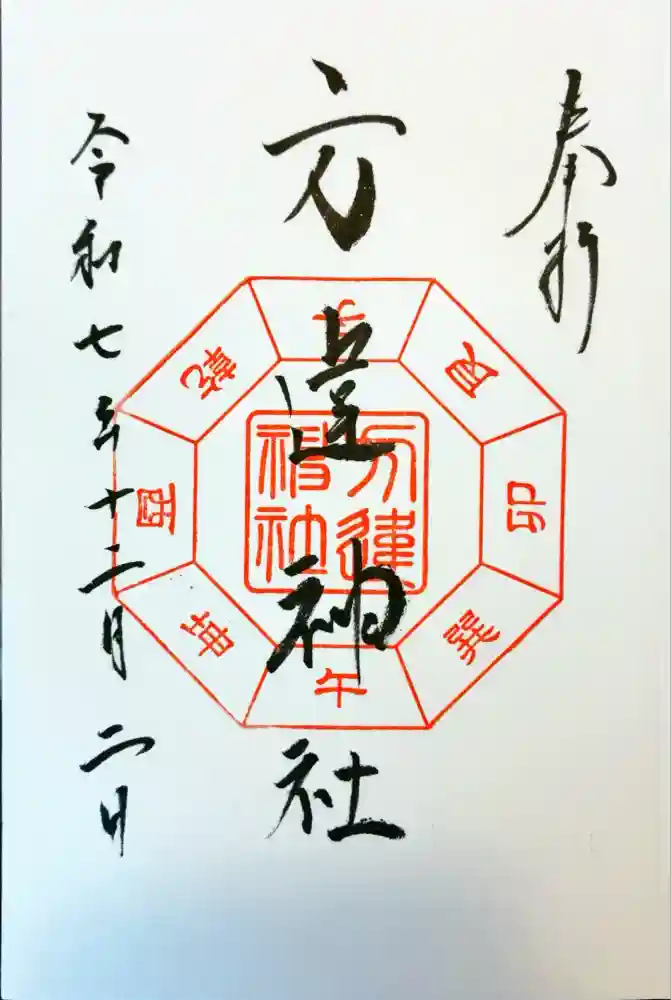 奉拝
方違神社
令和七年十二月二日
艮
卯
巽
午
坤
酉
乾
方違
神社